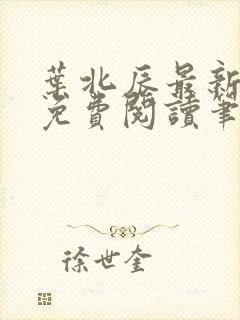 葉北辰最新
免費閱讀筆
徐世奎